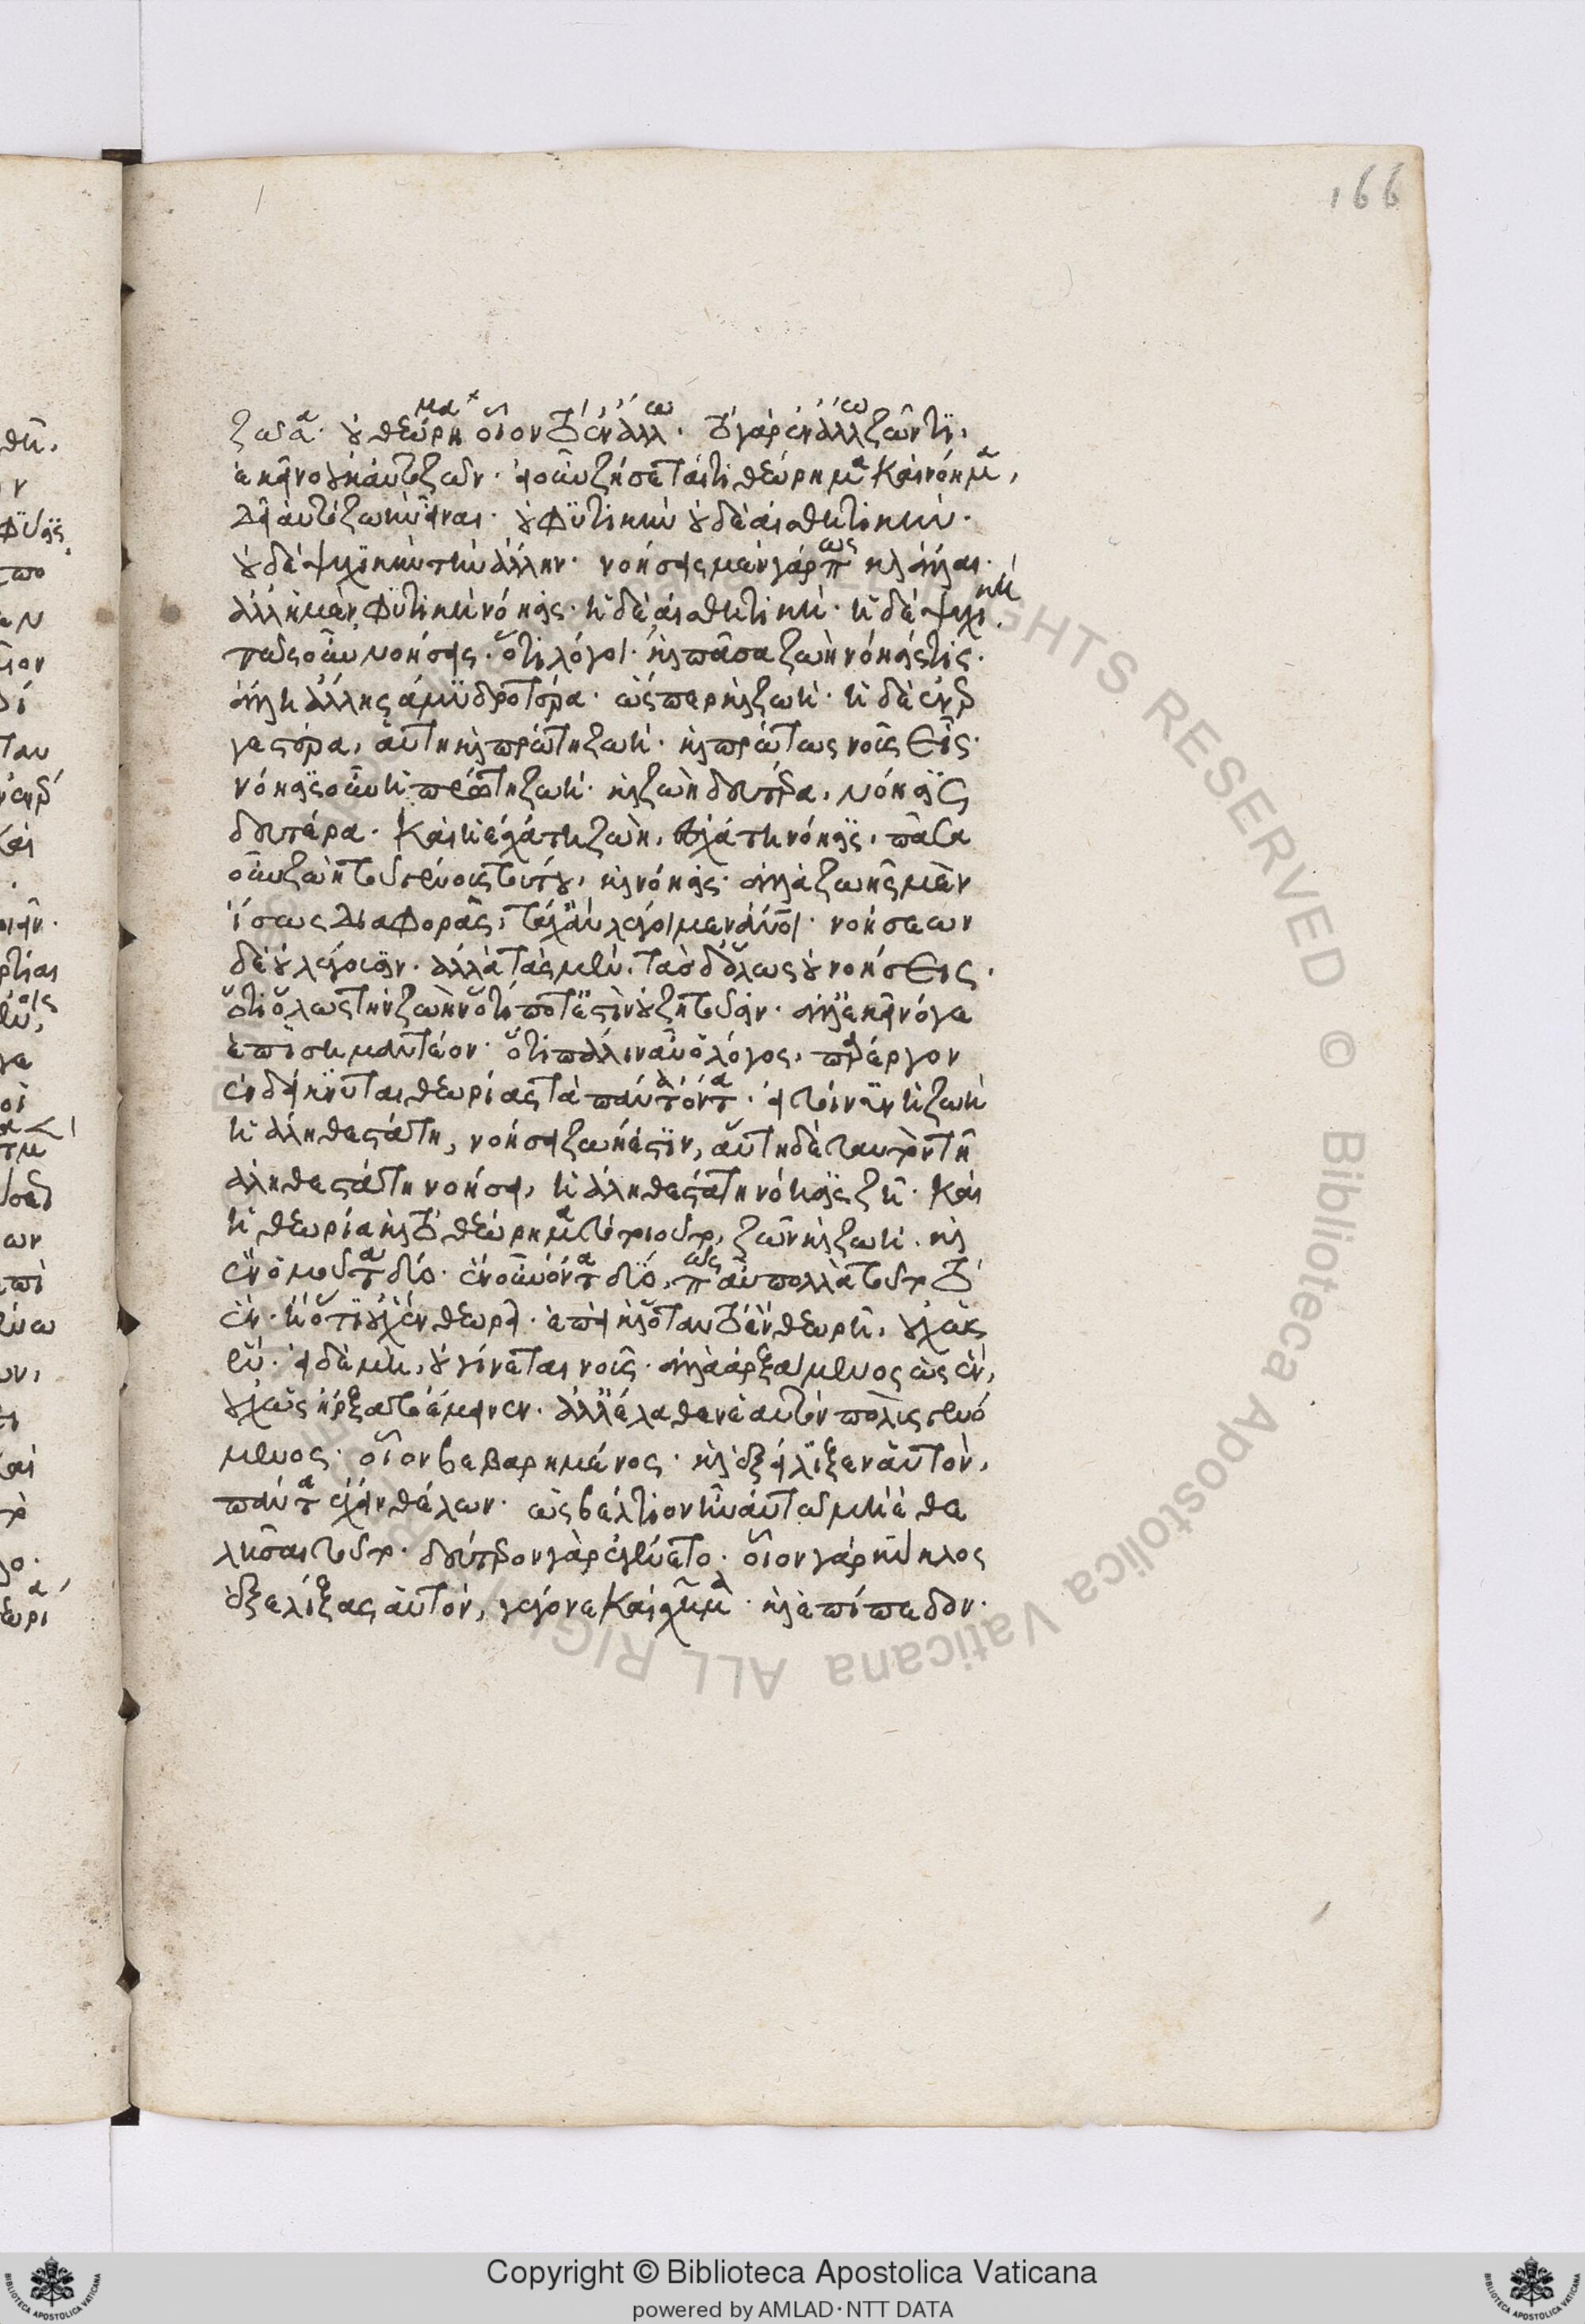 ζῶσα. οὐ θεώρημα οἷον τὸ ἐν ἄλλω. τὸ γὰρ ἐν ἄλλω ζῶν τι,
ἐκεῖνο οὐκ αὐτοζῶν. εἰ οὖν ζήσεταί τι θεώρημα καὶ νόημα,
δεῖ αὐτοζωὴν εἶναι. οὐ φυτικὴν οὐδὲ αἰσθητικὴν.
οὐδὲ ψυχικὴν τὴν ἄλλην. νοήσεις μὲν γάρ πως καὶ ἄλλαι.
ἀλλ' ἡ μὲν φυτικὴ νόησις. ἡ δὲ αἰσθητική. ἡ δὲ ψυχική.
πῶς οὖν νοήσεις. ὅτι λόγοι. καὶ πᾶσα ζωὴ νόησίς τις.
ἀλλ' ἡ ἄλλης ἀμυδροτέρα. ὥσπερ καὶ ζωή. ἡ δὲ ἐναρ
γεστέρα, αὕτη καὶ πρώτη ζωή. καὶ πρώτως νοῦς εἷς.
νόησις οὖν ἡ πρώτη ζωή. καὶ ζωὴ δευτέρα, νόησις
δευτέρα. καὶ ἡ ἐσχάτη ζωὴ, ἐσχάτη νόησις, πᾶσα
οὖν ζωὴ τοῦ γένους τούτου, καὶ νόησις. ἀλλὰ ζωῆς μὲν
ἴσως διαφορὰς, τάχ' ἂν λέγοιμεν ἄνθρωποι. νοήσεων
δὲ οὐ λέγουσιν. ἀλλὰ τὰς μὲν, τὰς δ' ὅλως οὐ νοήσεις.
ὅτι ὅλως τὴν ζωὴν ὅτι ποτ' ἐστὶν οὐ ζητοῦσιν. ἀλλ' ἐκεῖνό γε
ἐπισημαντέον. ὅτι πάλιν αὖ ὁ λόγος, πάρεργον
ἐνδείκνυται θεωρίας τὰ πάντα ὄντα. εἰ τοίνυν ἡ ζωὴ
ἡ ἀληθεστάτη, νοήσει ζωή ἐστιν, αὕτη δὲ ταυτὸν τῆ
ἀληθεστάτη νοήσει, ἡ ἀληθεστάτη νόησις ζῆ. καὶ
ἡ θεωρία καὶ τὸ θεώρημα τὸ τοιοῦτο, ζῶν καὶ ζωή. καὶ
ἓν ὁμοῦ τὰ δύο. ἓν οὖν ὄντα δύο, πῶς αὖ πολλὰ τοῦτο τὸ
ἕν. ἢ ὅτι οὐχ' ἓν θεωρεῖ. ἐπεὶ καὶ ὅταν τὸ ἓν θεωρῆ, οὐχ ὡς
ἕν. εἰ δὲ μὴ, οὐ γίνεται νοῦς. ἀλλὰ ἀρξάμενος ὡς ἓν,
οὐχ' ὡς ἤρξατο ἔμεινεν. ἀλλ' ἔλαθεν ἑαυτὸν πολὺς γενό
μενος. οἷον βεβαρημένος. καὶ ἐξείλιξεν αὑτὸν,
πάντα ἔχειν θέλων. ὡς βέλτιον ἦν αὐτῶ μὴ ἐθε
λῆσαι τοῦτο. δεύτερον γὰρ ἐγένετο. οἷον γὰρ κύκλος
ἐξελίξας αὑτὸν, γέγονε καὶ σχῆμα. καὶ ἐπίπεδον.
166
Copyright © Biblioteca Apostolica Vaticana
powered by AMLAD·NTT DATA